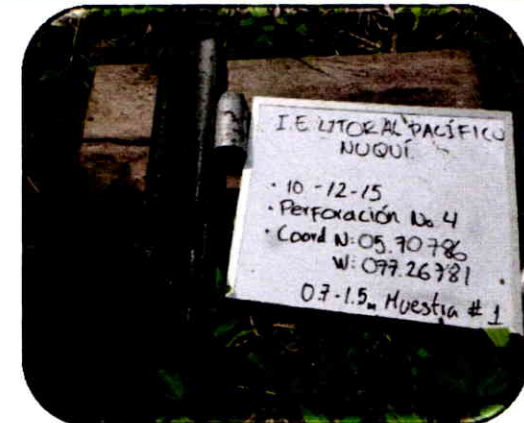 I.E LITORAL PACÍFICO
NUQUÍ
· 10-12-15
· Perforación No 4
· Coord N: 05.70786
W: 077.26781
0.7-1.5m Muestra # 1